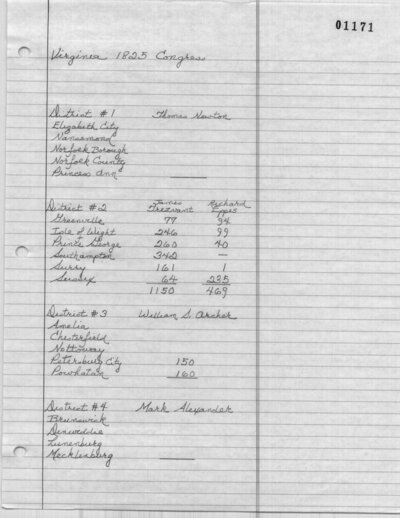 01171
Virginia 1825 Congress
District #1 Thomas Newton
Elizabeth City
Nansemond
Norfolk Borough
Norfolk County
Princess Ann
District #2 James Trezvant Richard Eppes
Greenville 77 94
Isle of Wight 246 99
Prince George 260 40
Southampton 342 —
Surry 161 1
Sussex 64 235
1150 469
District #3 William S. Archer
Amelia
Chesterfield
Nottoway
Petersburg City 150
Powhatan 160
District #4 Mark Alexander
Brunswick
Dinwiddie
Lunenburg
Mecklenburg